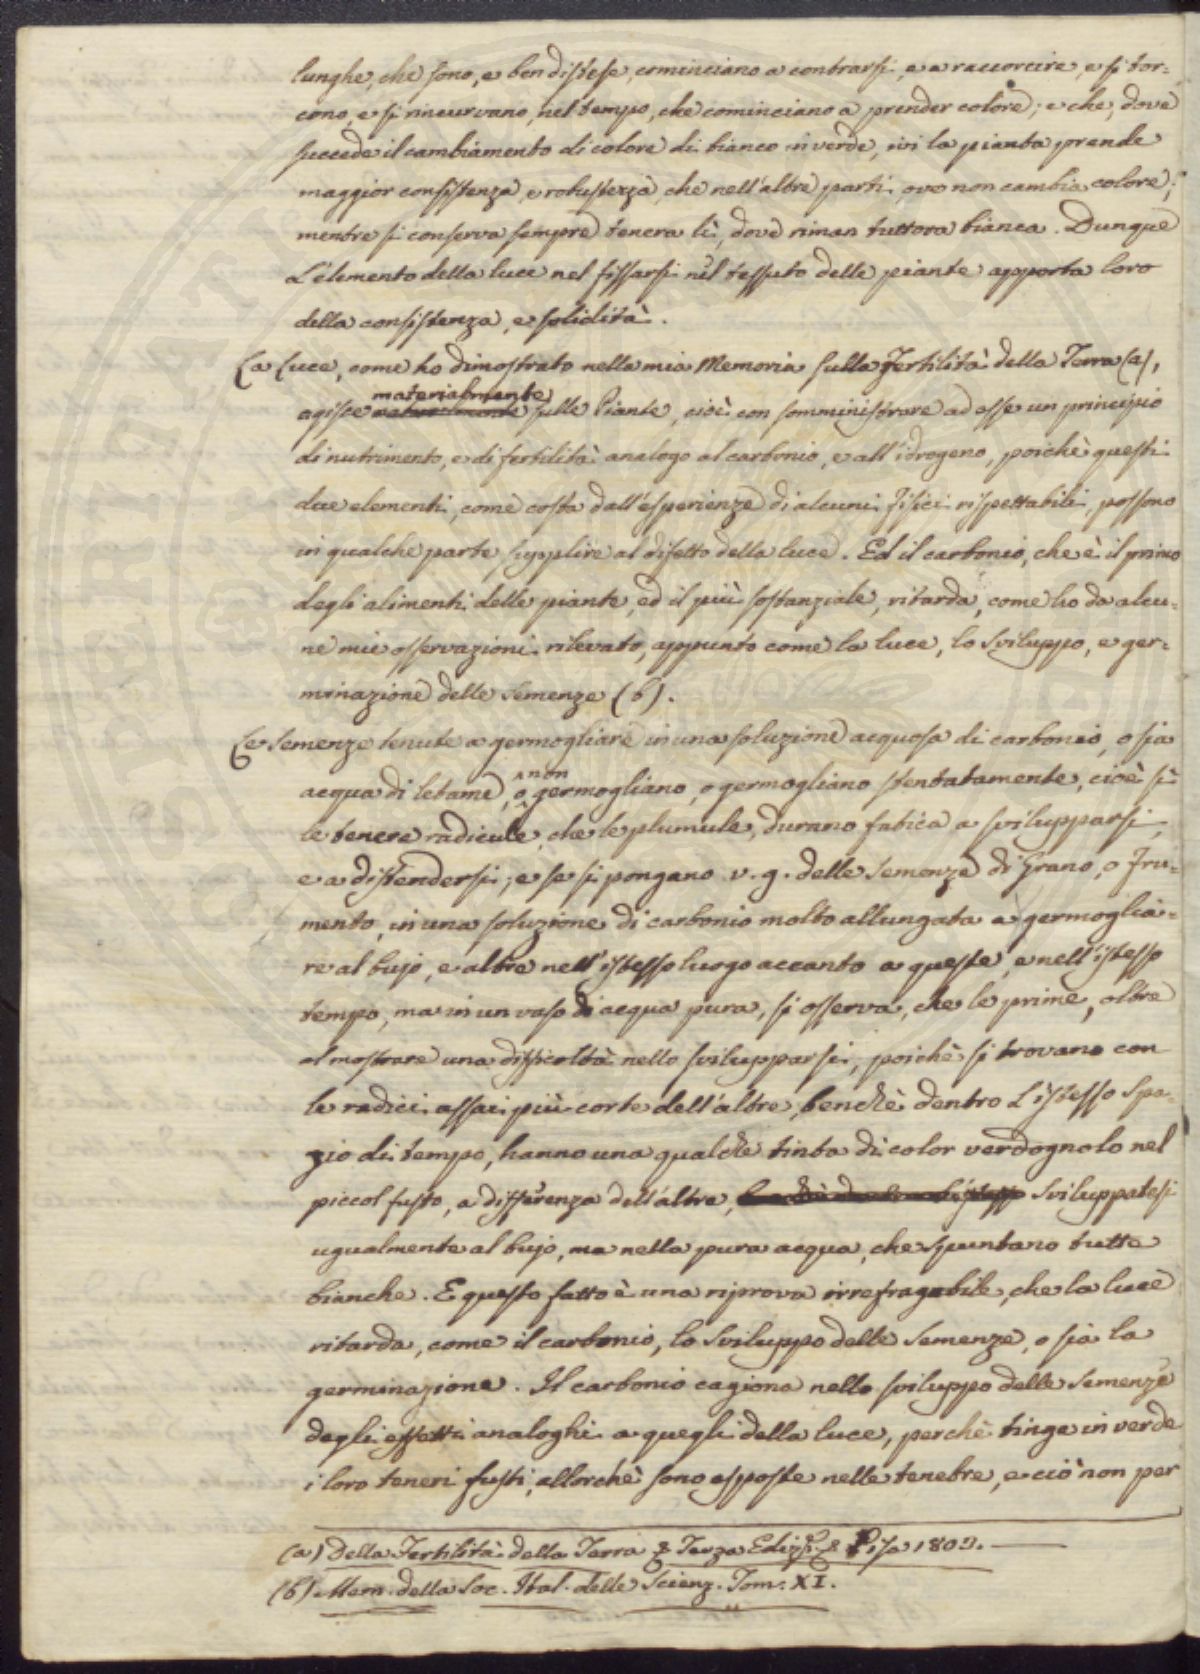 lunghe, che sono, e ben distese, cominciano a contrarsi, e a raccorcire, e si tor-
cono, e si rincurvano, nel tempo, che cominciano a prender colore; e che, dove
succede il cambiamento di colore di bianco in verde, ivi la pianta prende
maggior consistenza, e robustezza, che nell'altre parti, ove non cambia colore;
mentre si conserva sempre tenera lì, dove riman tuttora bianca. Dunque
L'elemento della luce nel fissarsi nel tessuto delle piante apporta loro
della consistenza, e solidità.
La Luce, come ho dimostrato nella mia Memoria sulla Fertilità della Terra (a),
materialmente
agisce sulle Piante, cioè con somministrare ad esse un principio
di nutrimento, e di fertilità analogo al carbonio, e all'idrogeno, poichè questi
due elementi, come costa dall'esperienze di alcuni Fisici rispettabili, possono
in qualche parte supplire al difetto della luce. Ed il carbonio, che è il primo
degli alimenti delle piante, ed il più sostanziale, ritarda, come ho da alcu-
ne mie osservazioni rilevato, appunto come la luce, lo sviluppo, e ger-
minazione delle Semenze (b).
Le Semenze tenute a germogliare in una soluzione acquosa di carbonio, o sia
non
acqua di letame, o germogliano, o germogliano stentatamente, cioè sì
le tenere radicule, che le plumule, durano fatica a svilupparsi,
e a distendersi; e se si pongano v. g. delle Semenze di Grano, o Fru-
mento, in una soluzione di carbonio molto allungata a germoglia-
re al bujo, e altre nell'istesso luogo accanto a queste, e nell'istesso
tempo, ma in un vaso di acqua pura, si osserva, che le prime, oltre
al mostrare una difficoltà nello svilupparsi, poichè si trovano con
le radici assai più corte dell'altre, benchè dentro L'istesso Spa-
zio di tempo, hanno una qualche tinta di color verdognolo nel
piccol fusto, a differenza dell'altre, Sviluppatesi
ugualmente al bujo, ma nella pura acqua, che spuntano tutte
bianche. E questo fatto è una riprova irrefragabile, che la luce
ritarda, come il carbonio, lo Sviluppo delle Semenze, o sia la
germinazione. Il carbonio cagiona nello sviluppo delle Semenze
degli effetti analoghi a quegli della luce, perchè tinge in verde
i loro teneri fusti, allorchè sono esposte nelle tenebre, e ciò non per
(a) Della Fertilità della Terra Terza Ediz. Pisa
(b) Mem. della Soc. Ital. delle Scienz. Tom. XI.